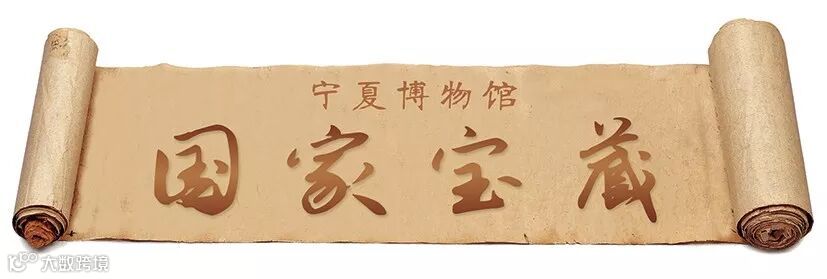 宁夏博物馆
国家宝藏
大数跨境